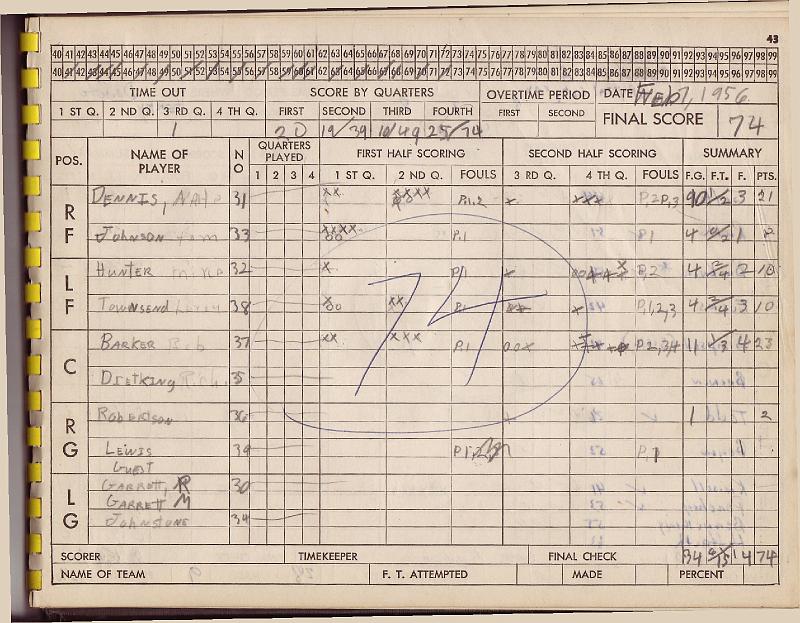 43
40 41 42 43 44 45 46 47 48 49 50 51 52 53 54 55 56 57 58 59 60 61 62 63 64 65 66 67 68 69 70 71 72 73 74 75 76 77 78 79 80 81 82 83 84 85 86 87 88 89 90 91 92 93 94 95 96 97 98 99
40 41 42 43 44 45 46 47 48 49 50 51 52 53 54 55 56 57 58 59 60 61 62 63 64 65 66 67 68 69 70 71 72 73 74 75 76 77 78 79 80 81 82 83 84 85 86 87 88 89 90 91 92 93 94 95 96 97 98 99
TIME OUT SCORE BY QUARTERS OVERTIME PERIOD DATE 1956
1 ST Q. 2 ND Q. 3 RD Q. 4 TH Q. FIRST SECOND THIRD FOURTH FIRST SECOND FINAL SCORE 74
1 20 19/39 10/49 25/74
POS. NAME OF PLAYER NO QUARTERS PLAYED FIRST HALF SCORING SECOND HALF SCORING SUMMARY
1 2 3 4 1 ST Q. 2 ND Q. FOULS 3 RD Q. 4 TH Q. FOULS F.G. F.T. F. PTS.
RF DENNIS, 31 xx P.1,2 x xxx P.3 3 21
JOHNSON Tom 33 xxxx oo P.1 4 1
LF HUNTER Mike 32 x P.1 x P.2 4 2 10
TOWNSEND 38 xoo xx P.1 x P.1,2,3 4 3 10
C BARKER Bob 37 xx xxx P.1 oox P.2,3,4 11 4 23
DIETKING Rich. 35
RG ROBERTSON 36 x 1 2
LEWIS 39 P.1
GUEST
LG GARRETT, R 30
GARRETT M
JOHNSTONE 34
74
SCORER TIMEKEEPER FINAL CHECK 34 14 74
NAME OF TEAM F. T. ATTEMPTED MADE PERCENT